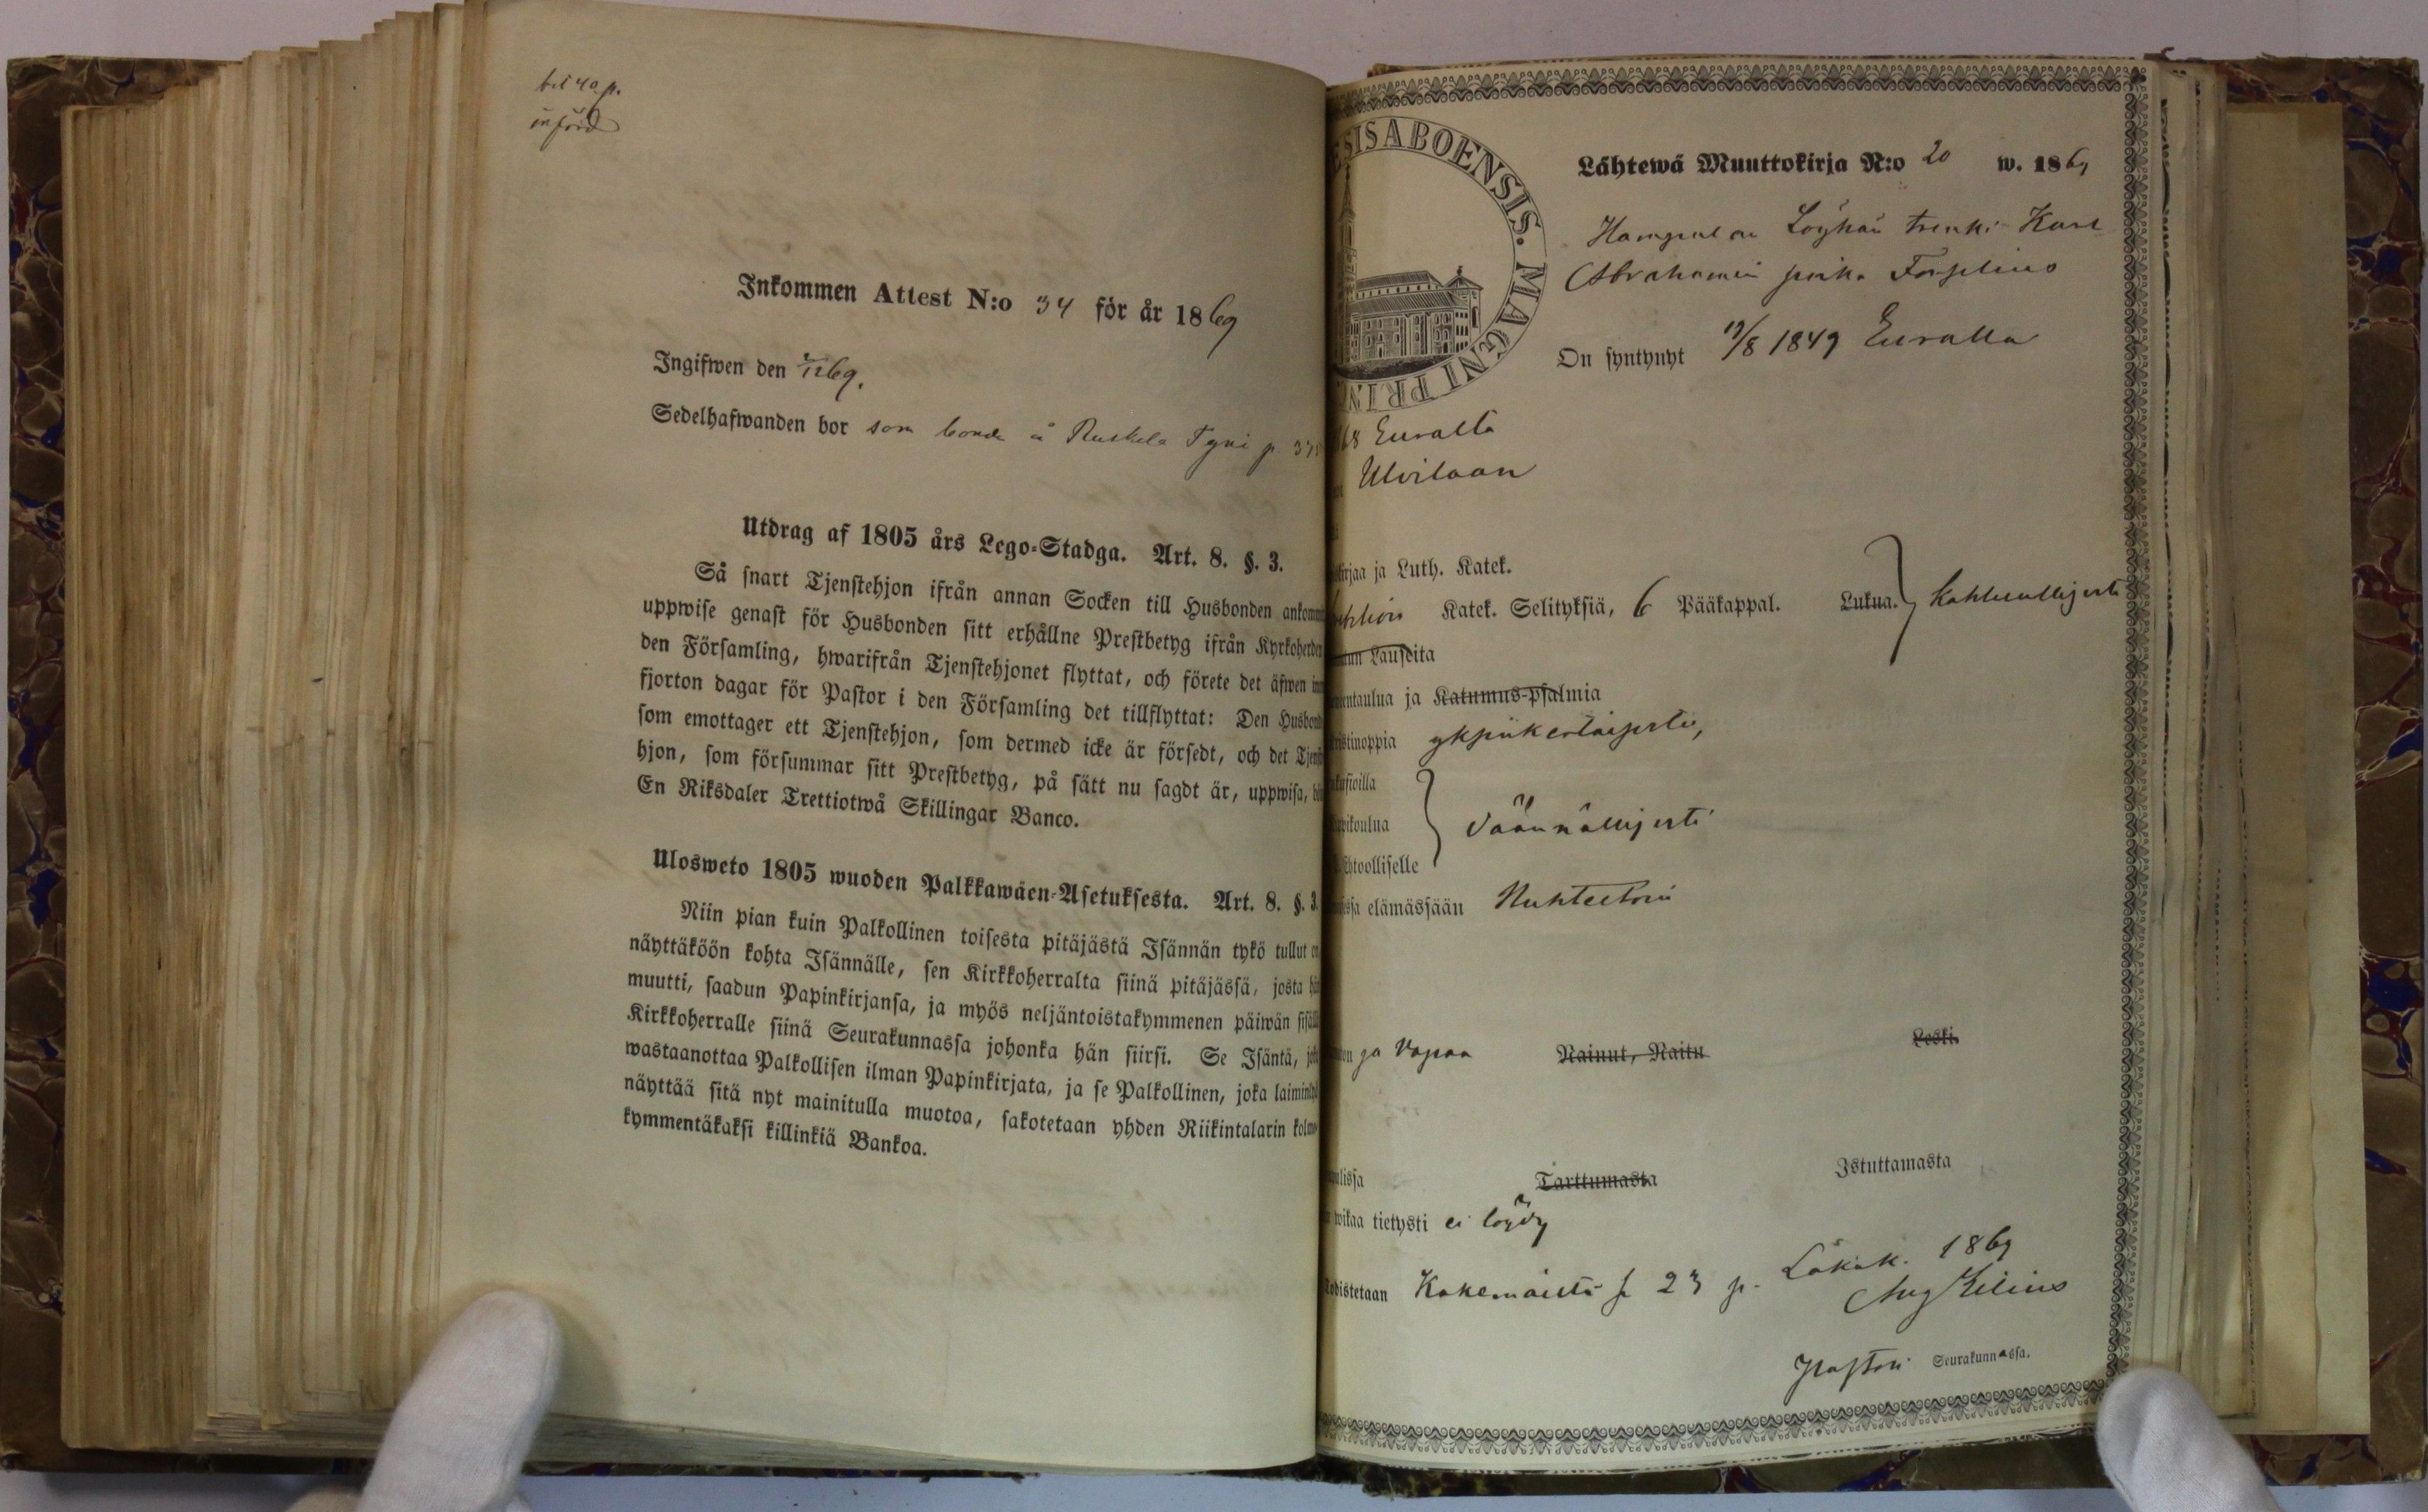 införd
Inkommen Attest N:o 34 för år 1869
Ingifwen den
Sedelhafwanden bor som bonde å Ruskela Tyni p.
Utdrag af 1805 års Lego-Stadga. Art. 8. §. 3.
Så snart Tjenstehjon ifrån annan Socken till Husbonden
uppwise genast för Husbonden sitt erhållne Prestbetyg ifrån
den Församling, hwarifrån Tjenstehjonet flyttat, och förete det äfwen
fjorton dagar för Pastor i den Församling det tillflyttat: Den
som emottager ett Tjenstehjon, som dermed icke är försedt, och det
hjon, som försummar sitt Prestbetyg, på sätt nu sagdt är, uppwisa,
En Riksdaler Trettiotwå Skillingar Banco.
Ulosweto 1805 wuoden Palkkawäen-Asetuksesta. Art. 8. §. 3.
Niin pian kuin Palkollinen toisesta pitäjästä Isännän tykö tullut
näyttäköön kohta Isännälle, sen Kirkkoherralta siinä pitäjässä, josta
muutti, saadun Papinkirjansa, ja myös neljäntoistakymmenen päiwän
Kirkkoherralle siinä Seurakunnassa johonka hän siirsi. Se Isäntä,
wastaanottaa Palkollisen ilman Papinkirjata, ja se Palkollinen, joka
näyttää sitä nyt mainitulla muotoa, sakotetaan yhden Riikintalarin
kymmentäkaksi killinkiä Bankoa.
ESIS ABOENSIS. MAGNI PRIN
Lähtewä Muuttokirja N:o 20 w. 1869
Löyhän trenki Karl
Abrahamin poika
On syntynyt 19/8 1849 Euralla
68 Euralta
Ulvilaan
ja Luth. Katek.
Katek. Selityksiä, 6 Pääkappal. Lukua. Kohtuullisesti
Lauseita
ja Katumus-psalmia
yksinkertaisesti,
Säännöllisesti
elämässään Nuhteeton
ja vapaa Nainut, Naitu Leski.
Tarttumasta Istuttamasta
wikaa tietysti ei löydy
Todistetaan Kokemäeltä 23 p. Lokak. 1869
Aug Kilius
Pastori Seurakunnassa.